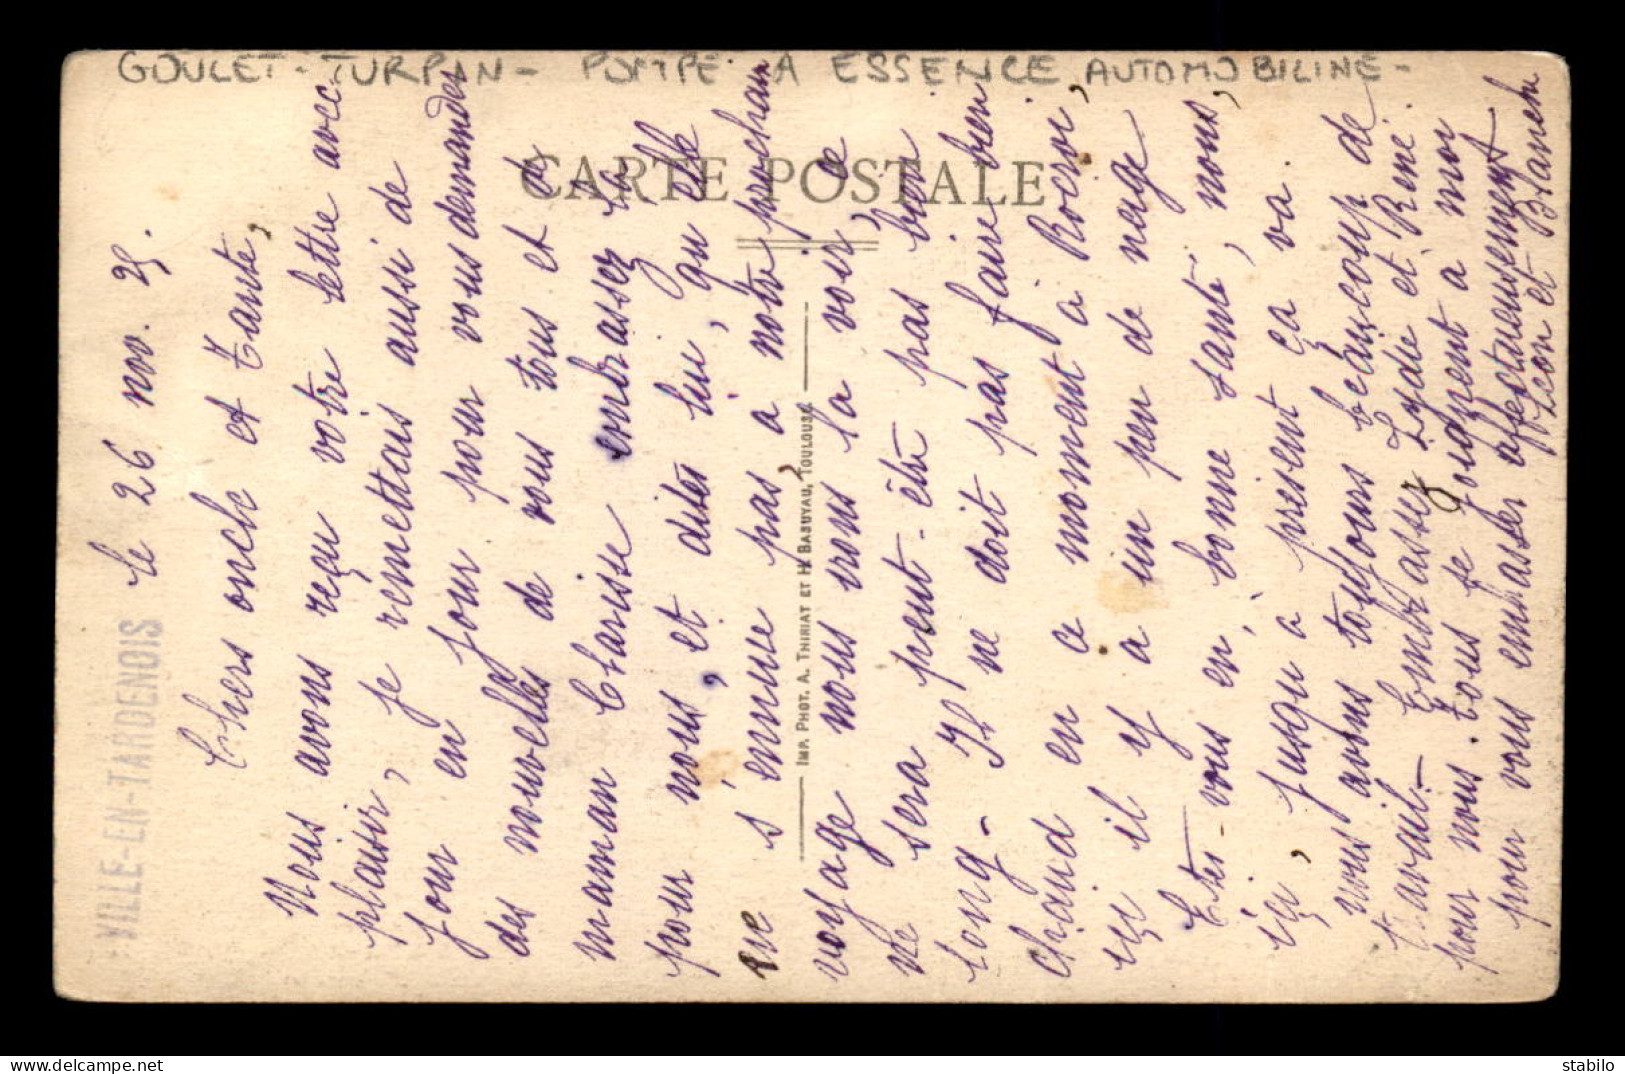 GOULET-TURPIN - POMPE A ESSENCE AUTOMOBILINE -
CARTE POSTALE
IMP. PHOT. A. THIRIAT ET H. BASUYAU, TOULOUSE
VILLE-EN-TARDENOIS
le 26 nov. 25.
Chers oncle et Tante,
Nous avons reçu votre lettre avec
plaisir, je remettais aussi de
jour en jour pour vous demander
des nouvelles de vous tous et de
maman Clarisse embrassez la
pour nous, et dites lui, qu elle
ne s'ennue pas, a notre prochain
voyage nous irons la voir, ce
ne sera peut-être pas bien
long - Il ne doit pas faire bien
chaud en ce moment à Rocroi,
içi il y a un peu de neige
Etes-vous en bonne santé, nous,
içi, jusqu a présent ça va.
nous avons toujours beaucoup de
travail - Embrassez Lydie et René
pour nous. tous se joignent à moi
pour vous embrasser affectueusement
Léon et Blanche